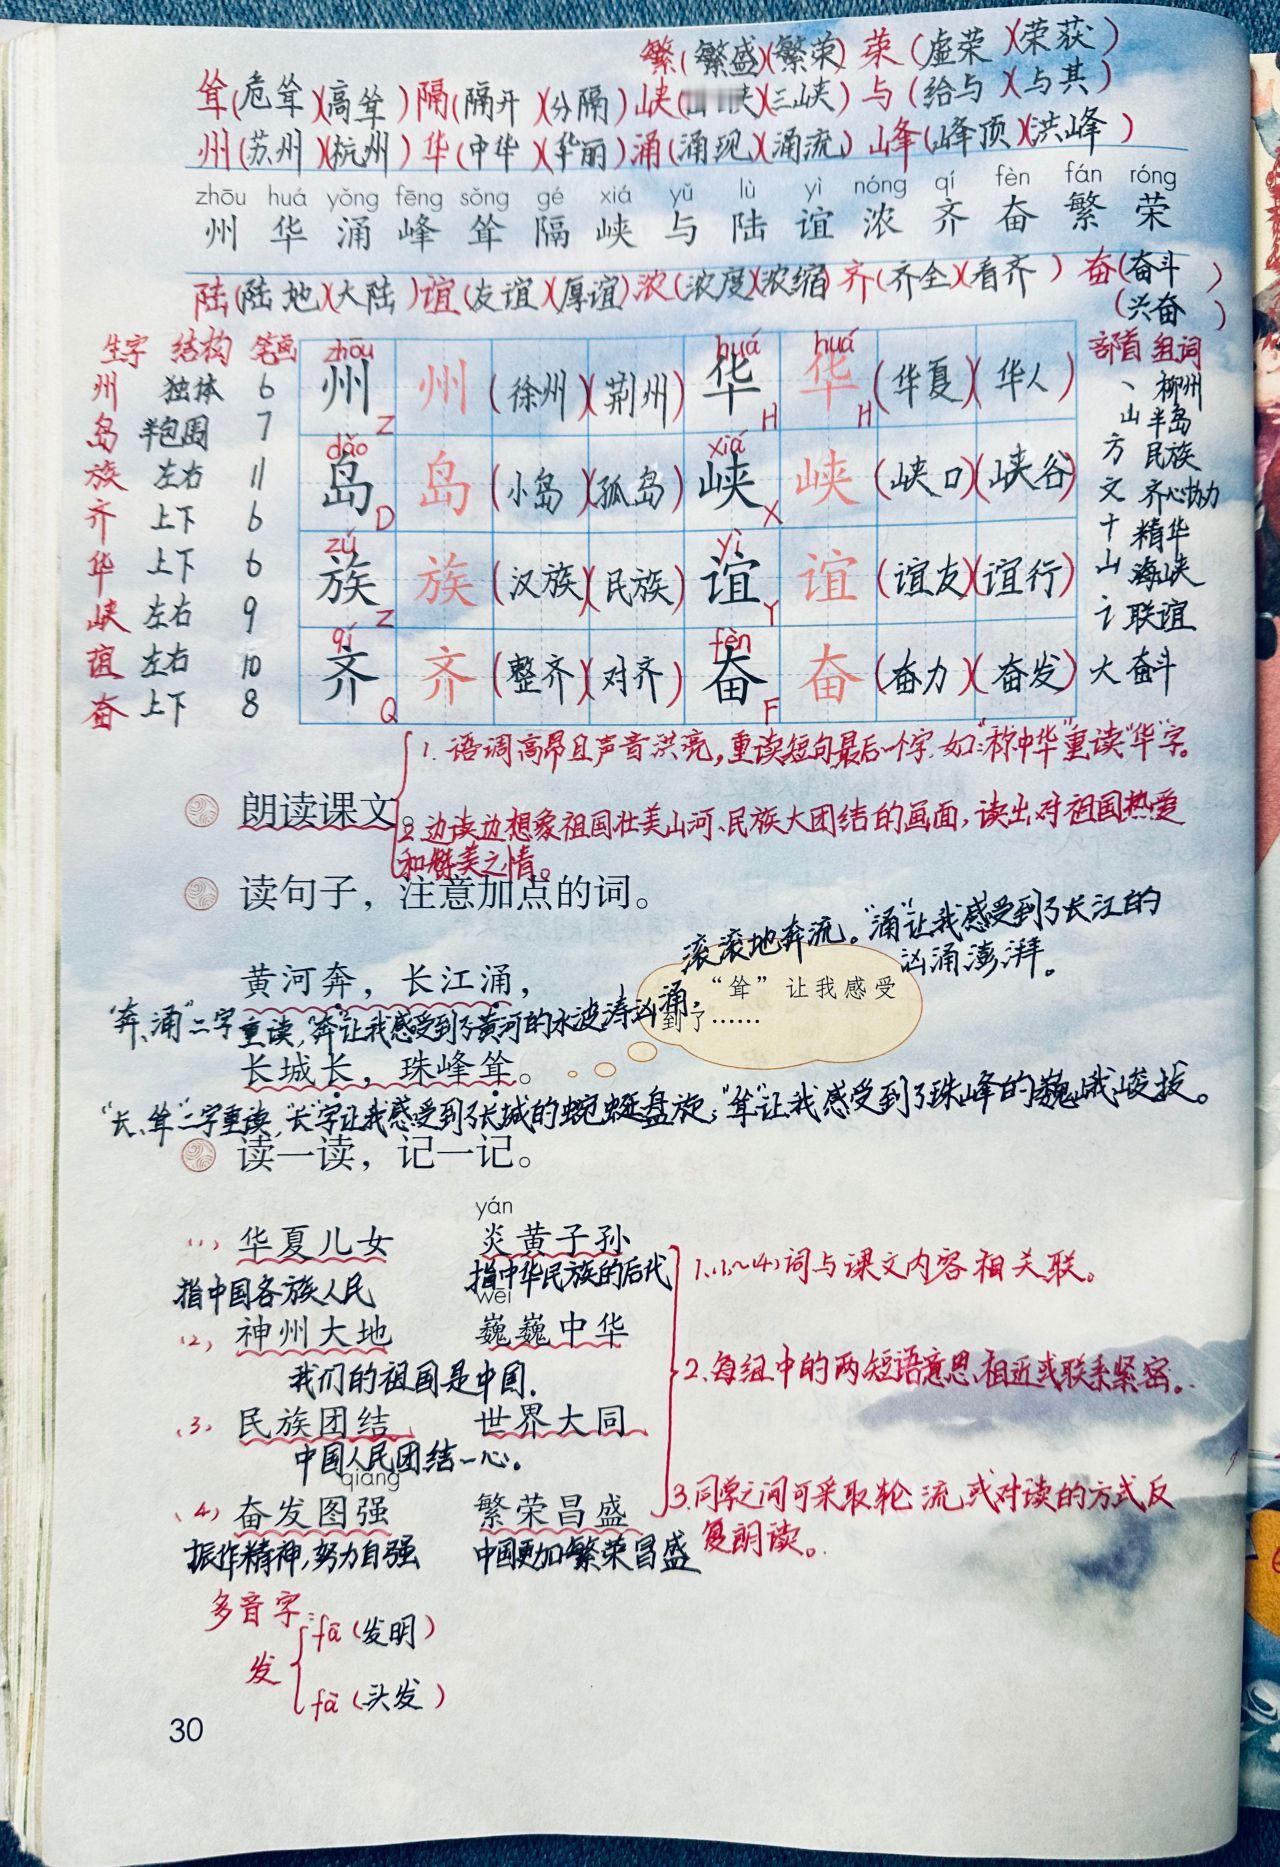 繁(繁盛)(繁荣) 荣(虚荣)(荣获)
耸(危耸)(高耸) 隔(隔开)(分隔) 峡(峡)(三峡) 与(给与)(与其)
州(苏州)(杭州) 华(中华)(华丽) 涌(涌现)(涌流) 峰(峰顶)(洪峰)
zhōu huá yǒng fēng sǒng gé xiá yǔ lù yì nóng qí fèn fán róng
州 华 涌 峰 耸 隔 峡 与 陆 谊 浓 齐 奋 繁 荣
陆(陆地)(大陆) 谊(友谊)(厚谊) 浓(浓度)(浓缩) 齐(齐全)(看齐) 奋(奋斗)
(兴奋)
生字 结构 笔画 zhōu huá huá 部首 组词
州 独体 6 州 Z 州 (徐州)(荆州) 华 H 华 H (华夏)(华人) 丶 柳州
岛 半包围 7 dǎo 岛 D 岛 (小岛)(孤岛) xiá 峡 X 峡 (峡口)(峡谷) 山 半岛
族 左右 11 zú 族 Z 族 (汉族)(民族) yì 谊 Y 谊 (谊友)(谊行) 方 民族
齐 上下 6 qí 齐 Q 齐 (整齐)(对齐) fèn 奋 F 奋 (奋力)(奋发) 文 齐心协力
华 上下 6 十 精华
峡 左右 9 山 海峡
谊 左右 10 讠 联谊
奋 上下 8 大 奋斗
1. 语调高昂且声音洪亮，重读短句最后一个字.如:“称中华”重读“华”字。
朗读课文。
2.边读边想象祖国壮美山河、民族大团结的画面，读出对祖国热爱
和赞美之情。
读句子，注意加点的词。
滚滚地奔流。“涌”让我感受到了长江的
汹涌澎湃。
黄河奔，长江涌，
“耸”让我感受
到了……
“奔、涌”二字重读，“奔”让我感受到了黄河的水波涛汹涌，
长城长，珠峰耸。
“长、耸”二字重读，“长”字让我感受到了长城的蜿蜒盘旋；“耸”让我感受到了珠峰的巍峨峻拔。
读一读，记一记。
yán
(1) 华夏儿女 炎黄子孙
指中国各族人民 指中华民族的后代
1、(1)~(4)词与课文内容相关联。
wēi
(2) 神州大地 巍巍中华
我们的祖国是中国.
2.每组中的两短语意思相近或联系紧密。
(3) 民族团结 世界大同
中国人民团结一心。
qiáng
(4) 奋发图强 繁荣昌盛
3.同学之间可采取轮流或对读的方式反
复朗读。
振作精神，努力自强 中国更加繁荣昌盛
多音字:
发 fā (发明)
fà (头发)
30